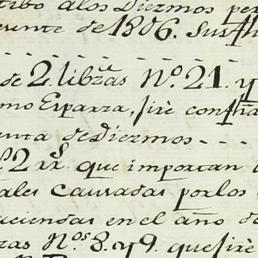 tibo alos Diezmos per
uente de 1806. Sus
de 2. libzas Nº. 21. y
mo Esparza, siè con
unta de Diezmos - - -
2 rs. que importan l
ales causadas por los
aciendas en el año de
zas Nos 8. y 9. que siè